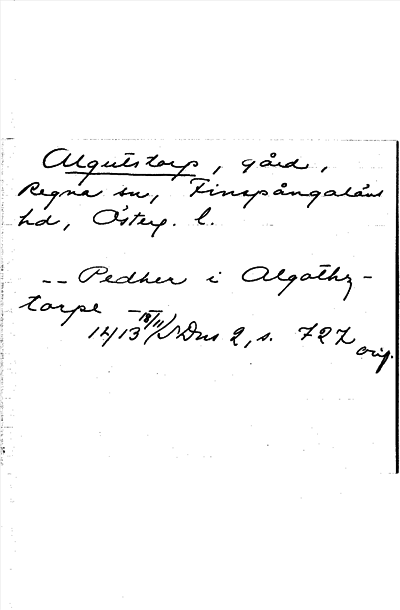 Algutstorp, gård,
Regna sn, Finspångaläns
hd, Österg. l.
-- Pedher i Algøthz-
torpe --
1413 18/11 SDns 2, s. 727
orig.